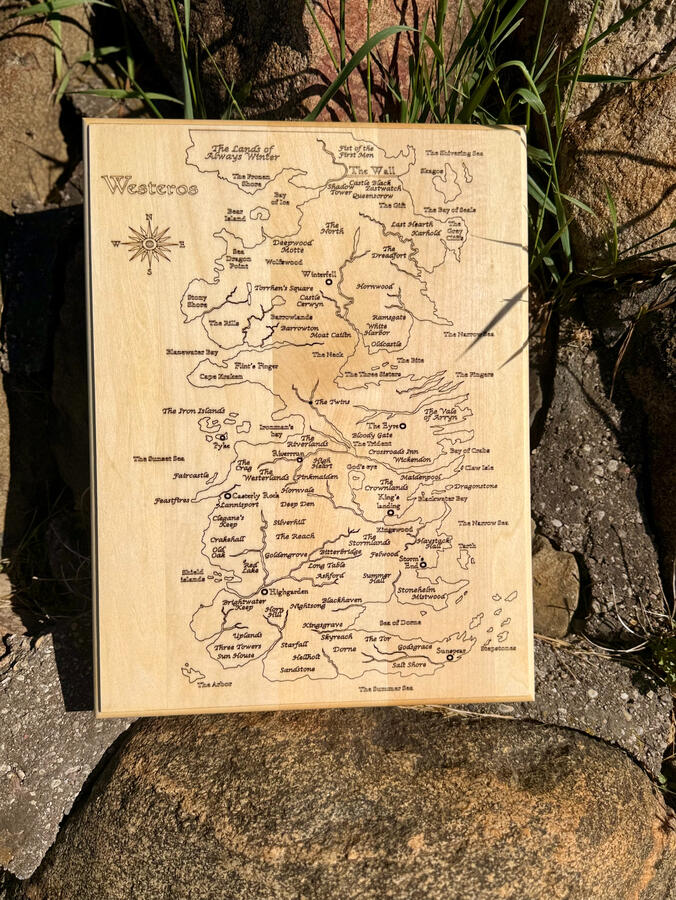 The Lands of
Always Winter
Fist of the
First Men
The Shivering Sea
The Wall
Skagos
Westeros
The Frozen
Shore
Castle Black
Shadow
Tower
Eastwatch
Queenscrow
Bay
of Ice
The Gift
The Bay of Seals
Bear
Island
N
W
E
S
The
North
Last Hearth
Karhold
The
Grey
Cliffs
Deepwood
Motte
Sea
Dragon
Point
Wolfswood
The
Dreadfort
Winterfell
Torrhen's Square
Hornwood
Stony
Shore
Castle
Cerwyn
The Rills
Barrowlands
Barrowton
Ramsgate
White
Harbor
Moat Cailin
Oldcastle
The Narrow Sea
Blazewater Bay
The Neck
The Bite
Flint's Finger
Cape Kraken
The Three Sisters
The Fingers
The Twins
The Iron Islands
The Vale
of Arryn
Pyke
Ironman's
bay
The Eyre
Bloody Gate
The
Riverlands
The Trident
Crossroads Inn
Bay of Crabs
The Sunset Sea
Riverrun
High
Heart
Wickendon
The
Crag
God's eye
Claw Isle
Faircastle
The
Westerlands
Pinkmaiden
Maidenpool
The
Crownlands
Dragonstone
Feastfires
Casterly Rock
Lannisport
Hornvale
Deep Den
King's
landing
Blackwater Bay
Clegane's
Keep
Silverhill
Kingswood
The Narrow Sea
Crakehall
The Reach
The
Stormlands
Haystack
Hall
Old
Oak
Goldengrove
Bitterbridge
Felwood
Tarth
Red
Lake
Long Table
Storm's
End
Shield
islands
Ashford
Summer
Hall
Highgarden
Stonehelm
Mistwood
Brightwater
Keep
Horn
Hill
Nightsong
Blackhaven
Kingsgrave
Sea of Dorne
Uplands
Skyreach
The Tor
Three Towers
Sun House
Starfall
Dorne
Godsgrace
Sunspear
Stepstones
Hellholt
Salt Shore
Sandstone
The Arbor
The Summer Sea